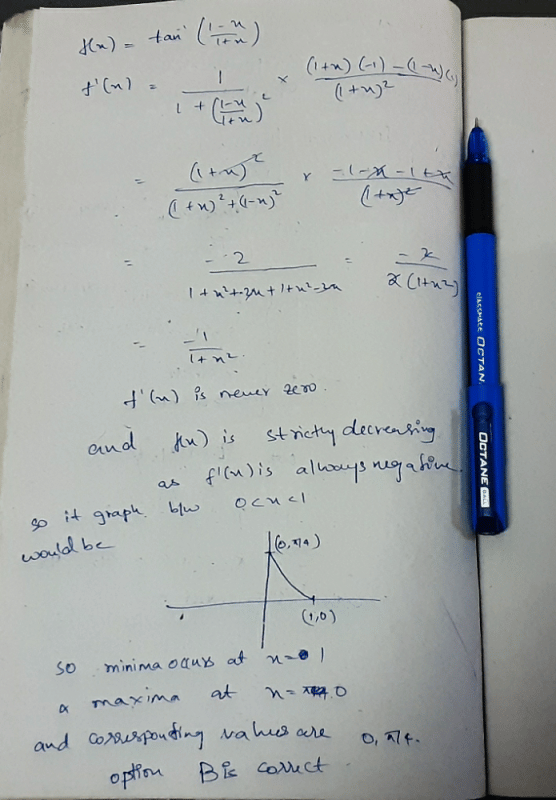 f(x) = tan⁻¹ (1-x/1+x)
f'(x) = 1/(1 + (1-x/1+x)²) × ((1+x)(-1) - (1-x)(1))/(1+x)²
= (1+x)²/((1+x)²+(1-x)²) × (-1-x-1+x)/(1+x)²
= -2/(1+x²+2x+1+x²-2x) = -2/(2(1+x²))
= -1/(1+x²)
f'(x) is never zero.
and f(x) is strictly decreasing
as f'(x) is always negative.
so it graph b/w 0<x<1
would be
(0, π/4)
(1,0)
so minima occurs at x = 1
& maxima at x = 0
and corresponding values are 0, π/4.
option B is correct
classmate OCTANE
OCTANE BALL